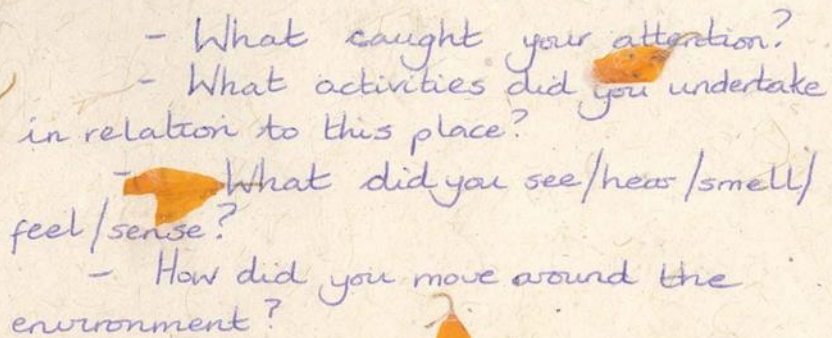 - What caught your attention?
- What activities did you undertake
in relation to this place?
- What did you see/hear/smell/
feel/sense?
- How did you move around the
environment?